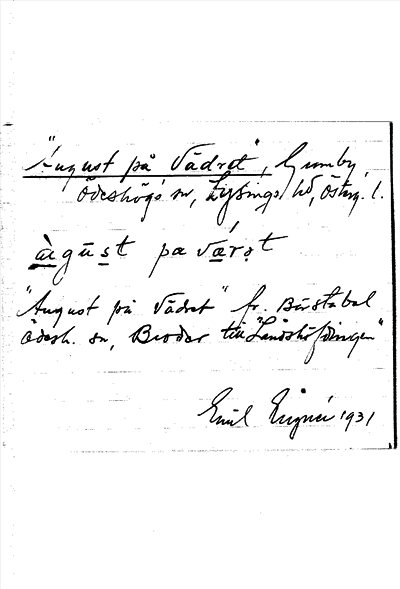 "August på Vädret", Gumby,
Ödeshögs sn, Lysings hd, Österg. l.
àgūst pa várət
"August på Vädret" fr. Börstabol
Ödesh. sn, Broder till "Landshöfdingen"
Emil 1931